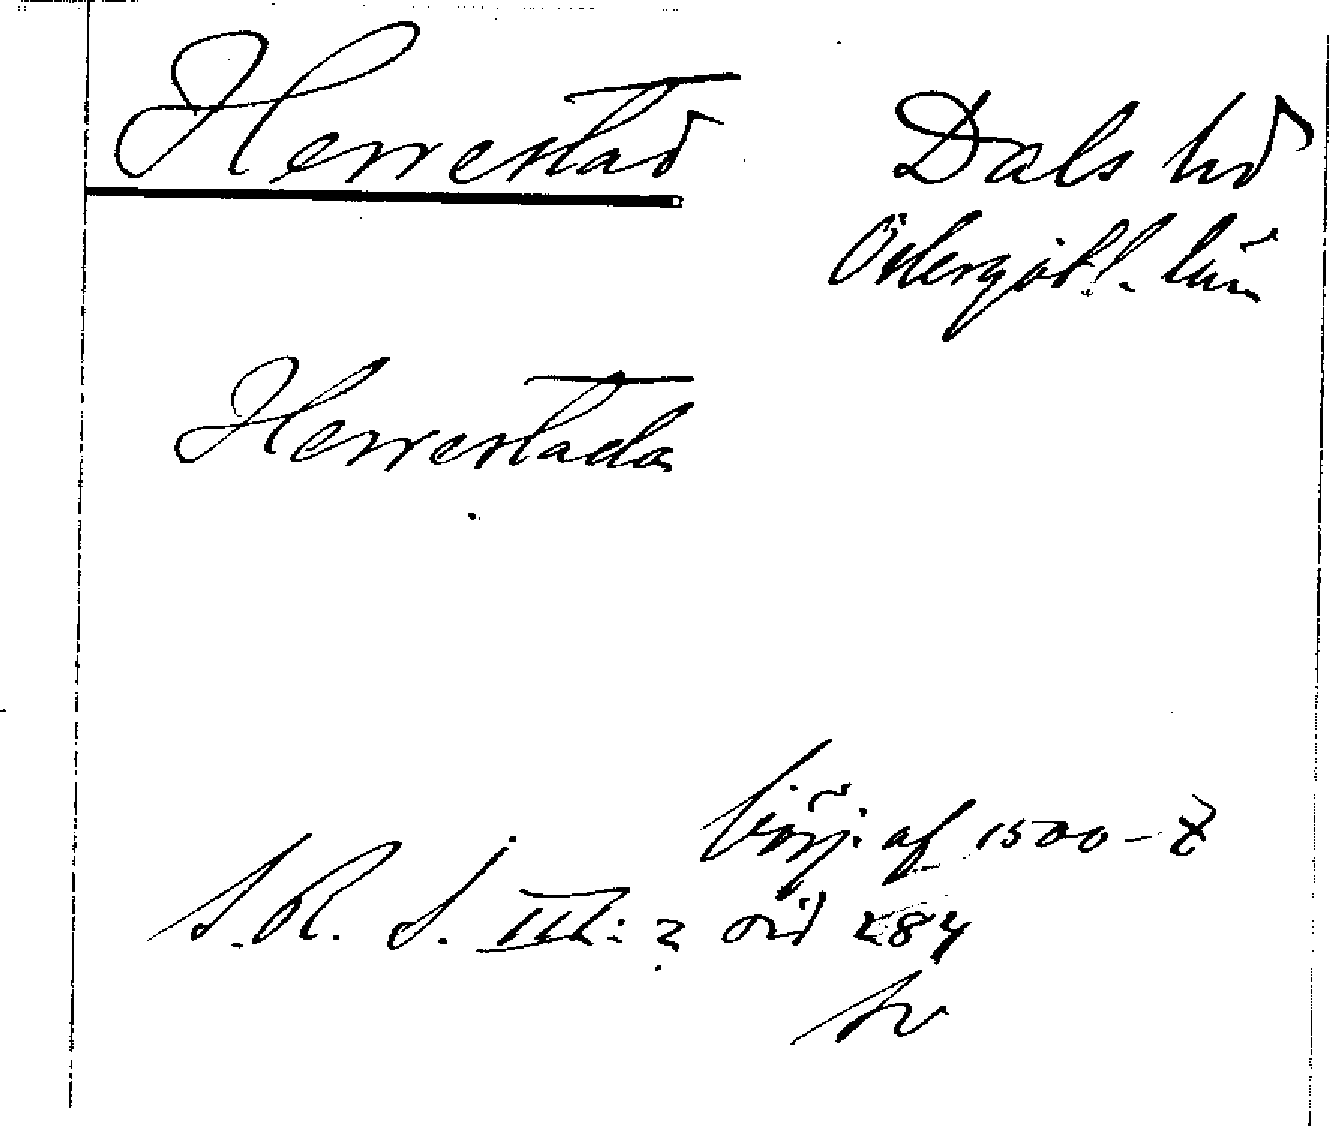 Herrestad Dals hd
Östergötl. län
Herrestada
börj. af 1500-t
S.R.S. III:2 sid 284
sv